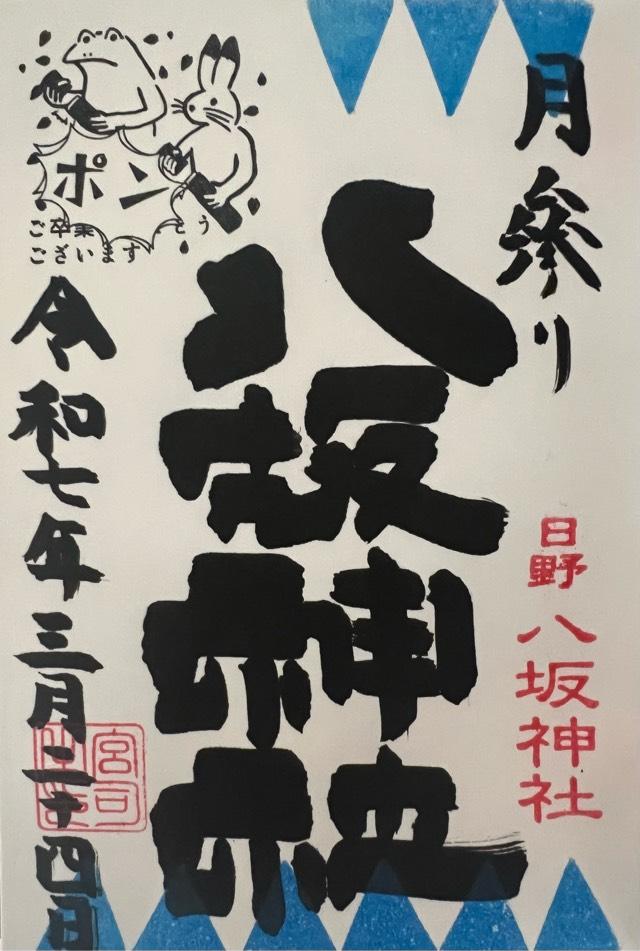 月参り
日野
八坂神社
八坂神社
ポン
ご卒業
とう
ございます
令和七年三月二十四日